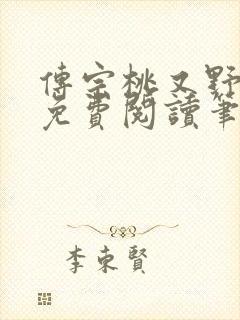 傅宗桃又野
免費閱讀筆
李東賢